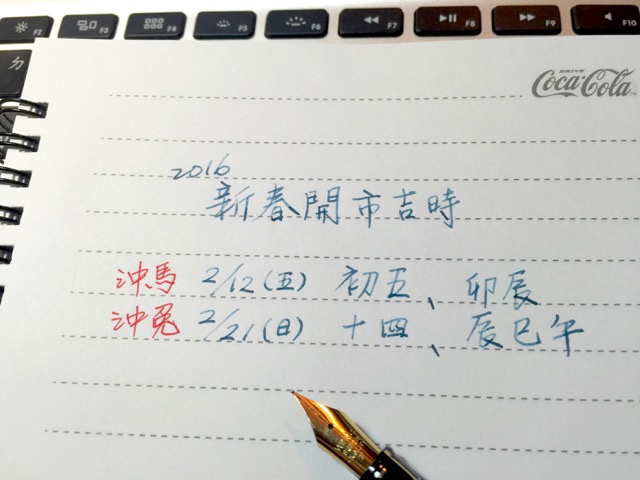 F2 F3 F4 F5 F6 F7 F8 F9 F10
ㄉ
DRINK
Coca-Cola
2016
新春開市吉時
沖馬 2/12(五) 初五、卯辰
沖兔 2/21(日) 十四、辰巳午